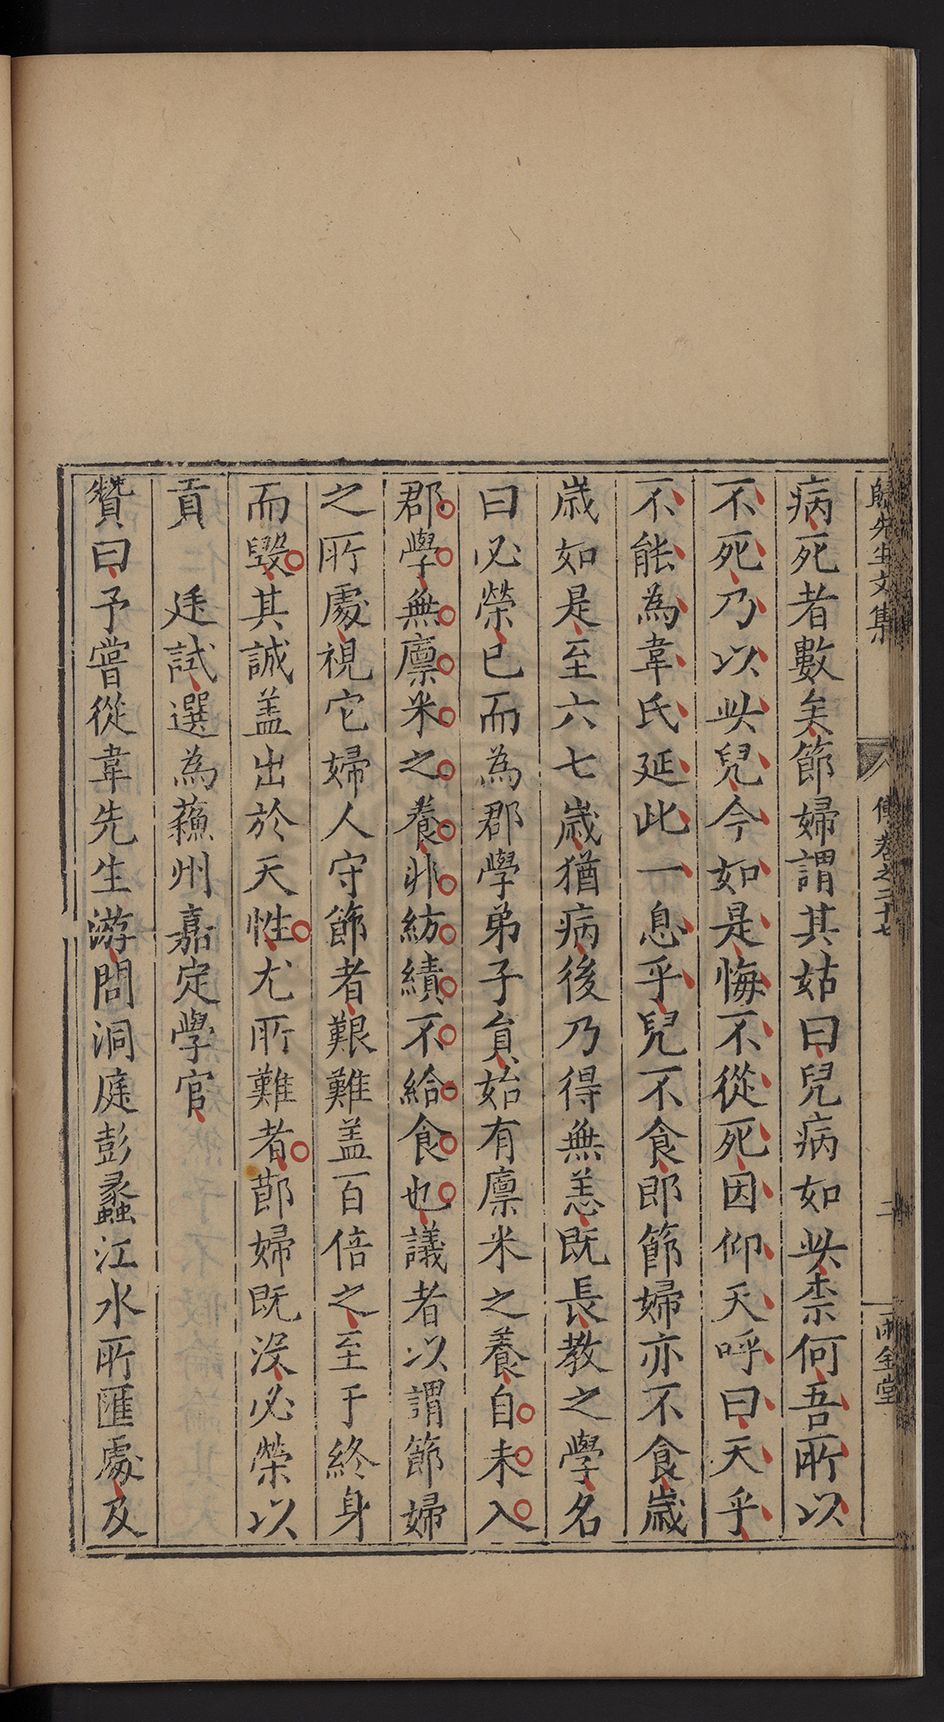 歸先生文集
傳卷之二十七
二
雨金堂
病死者數矣節婦謂其姑曰兒病如此柰何吾所以
不死乃以此兒今如是悔不從死因仰天呼曰天乎
不能為韋氏延此一息乎兒不食郎節婦亦不食歲
歲如是至六七歲猶病後乃得無恙既長教之學名
曰必榮已而為郡學弟子員始有廩米之養自未入
郡學無廩米之養非紡績不給食也議者以謂節婦
之所處視它婦人守節者艱難盖百倍之至于終身
而毀其誠盖出於天性尤所難者節婦既沒必榮以
貢　廷試選為蘓州嘉定學官
贊曰予嘗從韋先生游問洞庭彭蠡江水所匯處及